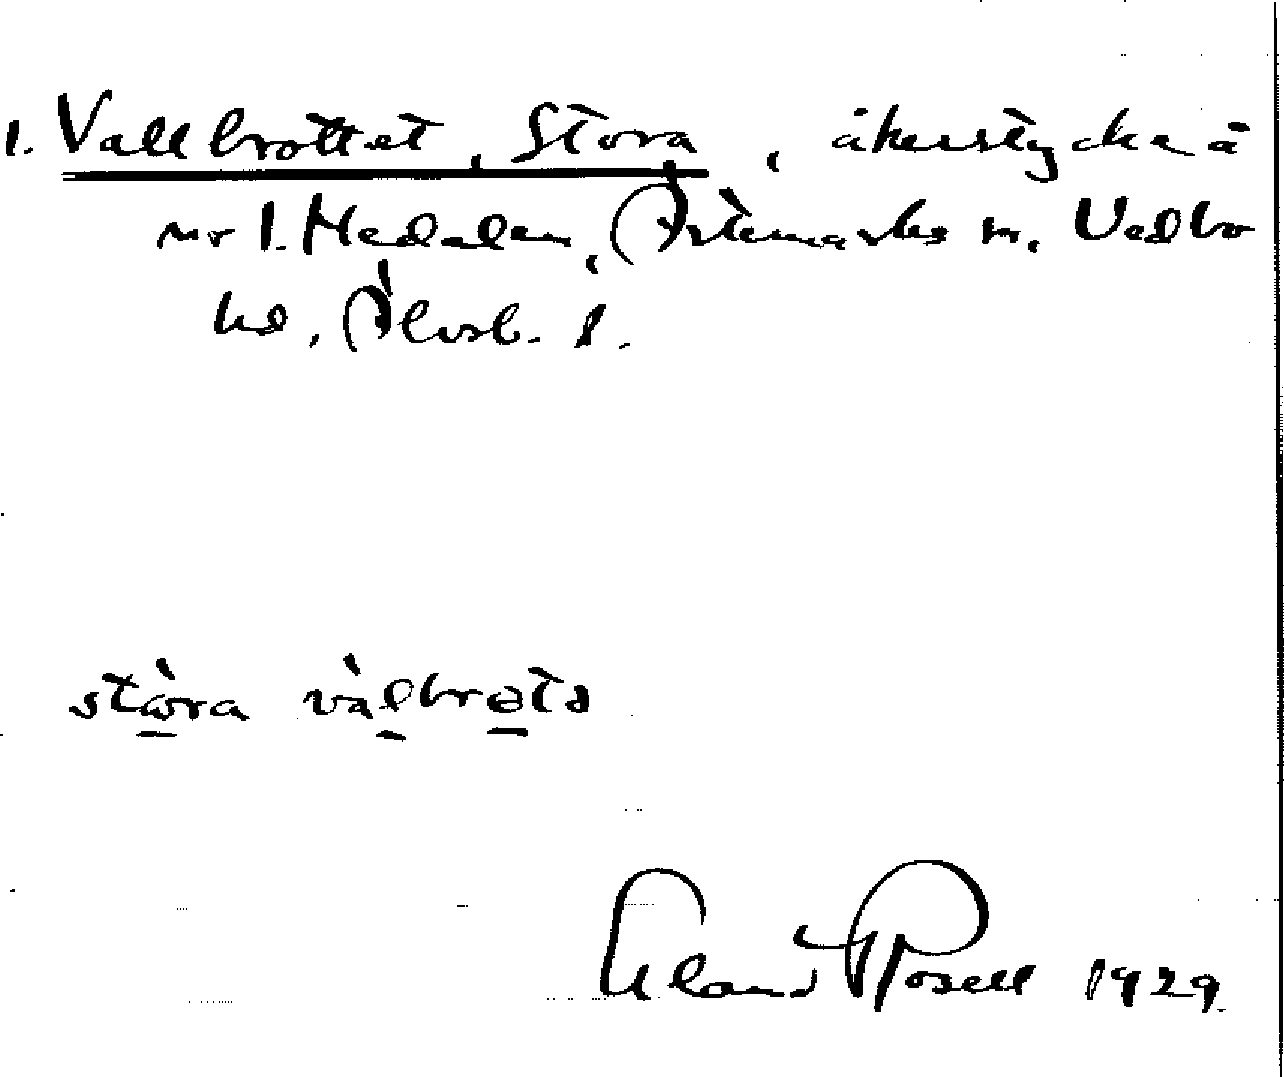 1. Vallbrottet, Stora, åkerstycke å
nr 1. Medalen, Ärtemarks sn, Vedbo
hd, Älvsb. l.
stòra vàlbrǝtǝ
Rosell 1929